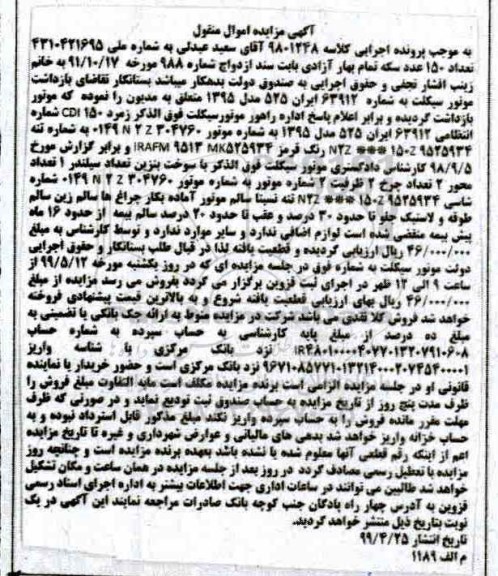 آگهی مزایده اموال منقول
به موجب پرونده اجرایی کلاسه ۹۸۰۱۲۴۸ آقای سعید عبدلی به شماره ملی ۴۳۱۰۴۲۱۶۹۵
تعداد ۱۵۰ عدد سکه تمام بهار آزادی بابت سند ازدواج شماره ۹۸۸ مورخه ۹۱/۱۰/۱۷ به خانم
زینب افشار نجفی و حقوق اجرایی به صندوق دولت بدهکار میباشد بستانکار تقاضای بازداشت
موتور سیکلت به شماره ۶۳۹۱۲ ایران ۵۲۵ مدل ۱۳۹۵ متعلق به مدیون را نموده که موتور
بازداشت گردیده و برابر اعلام پاسخ اداره راهور موتورسیکلت فوق الذکر زمرد CDI ۱۵۰ شماره
انتظامی ۶۳۹۱۲ ایران ۵۲۵ مدل ۱۳۹۵ به شماره موتور ۰۱۴۹ N ۲ Z ۳۰۴۷۶۰ به شماره تنه
N۲Z *** ۱۵۰Z ۹۵۲۵۹۳۴ رنگ قرمز IRAFM ۹۵۱۳ MK۵۲۵۹۳۴ و برابر گزارش مورخ
۹۸/۹/۵ کارشناس دادگستری موتور سیکلت فوق الذکر با سوخت بنزین تعداد سیلندر ۱ تعداد
محور ۲ تعداد چرخ ۲ ظرفیت ۲ شماره موتور به شماره موتور ۰۱۴۹ N ۲ Z ۳۰۴۷۶۰ شماره
شاسی N۲Z *** ۱۵۰Z ۹۵۲۵۹۳۴ تنه نسبتا سالم موتور آماده بکار چراغ ها سالم زین سالم
طوقه و لاستیک جلو تا حدود ۳۰ درصد و عقب تا حدود ۲۰ درصد سالم بیمه از حدود ۱۶ ماه
پیش بیمه منقضی شده است لوازم اضافی ندارد و سایر موارد ندارد و توسط کارشناس به مبلغ
۴۶/۰۰۰/۰۰۰ ریال ارزیابی گردیده و قطعیت یافته لذا در قبال طلب بستانکار و حقوق اجرایی
دولت موتور سیکلت به شماره فوق در جلسه مزایده ای که در روز یکشنبه مورخه ۹۹/۵/۱۲ از
ساعت ۹ الی ۱۲ ظهر در اجرای ثبت قزوین برگزار می گردد بفروش می رسد مزایده از مبلغ
۴۶/۰۰۰/۰۰۰ ریال بهای ارزیابی قطعیت یافته شروع و به بالاترین قیمت پیشنهادی فروخته
خواهد شد فروش کلا نقدی می باشد شرکت در مزایده منوط به ارائه چک بانکی یا تضمینی به
مبلغ ده درصد از مبلغ پایه کارشناسی به حساب سپرده به شماره حساب
IR۴۸۰۱۰۰۰۰۴۰۷۷۰۱۳۲۰۷۹۱۰۶۰۸ نزد بانک مرکزی با شناسه واریز
۹۶۷۱۰۸۵۷۷۱۰۱۳۲۱۴۰۰۰۲۰۷۴۵۴۰۰۰۱ نزد بانک مرکزی است و حضور خریدار یا نماینده
قانونی او در جلسه مزایده الزامی است برنده مزایده مکلف است مابه التفاوت مبلغ فروش را
ظرف مدت پنج روز از تاریخ مزایده به حساب صندوق ثبت تودیع نماید و در صورتی که ظرف
مهلت مقرر مانده فروش را به حساب سپرده واریز نکند مبلغ مذکور قابل استرداد نبوده و به
حساب خزانه واریز خواهد شد بدهی های مالیاتی و عوارض شهرداری و غیره تا تاریخ مزایده
اعم از اینکه رقم قطعی آنها معلوم شده یا نشده باشد بعهده برنده مزایده است و چنانچه روز
مزایده با تعطیل رسمی مصادف گردد در روز بعد از جلسه مزایده در همان ساعت و مکان تشکیل
خواهد شد طالبین می توانند در ساعات اداری جهت اطلاعات بیشتر به اداره اجرای اسناد رسمی
قزوین به آدرس چهار راه پادگان جنب کوچه بانک صادرات مراجعه نمایند این آگهی در یک
نوبت بتاریخ ذیل منتشر خواهد گردید.
تاریخ انتشار ۹۹/۴/۲۵
م الف ۱۱۸۹